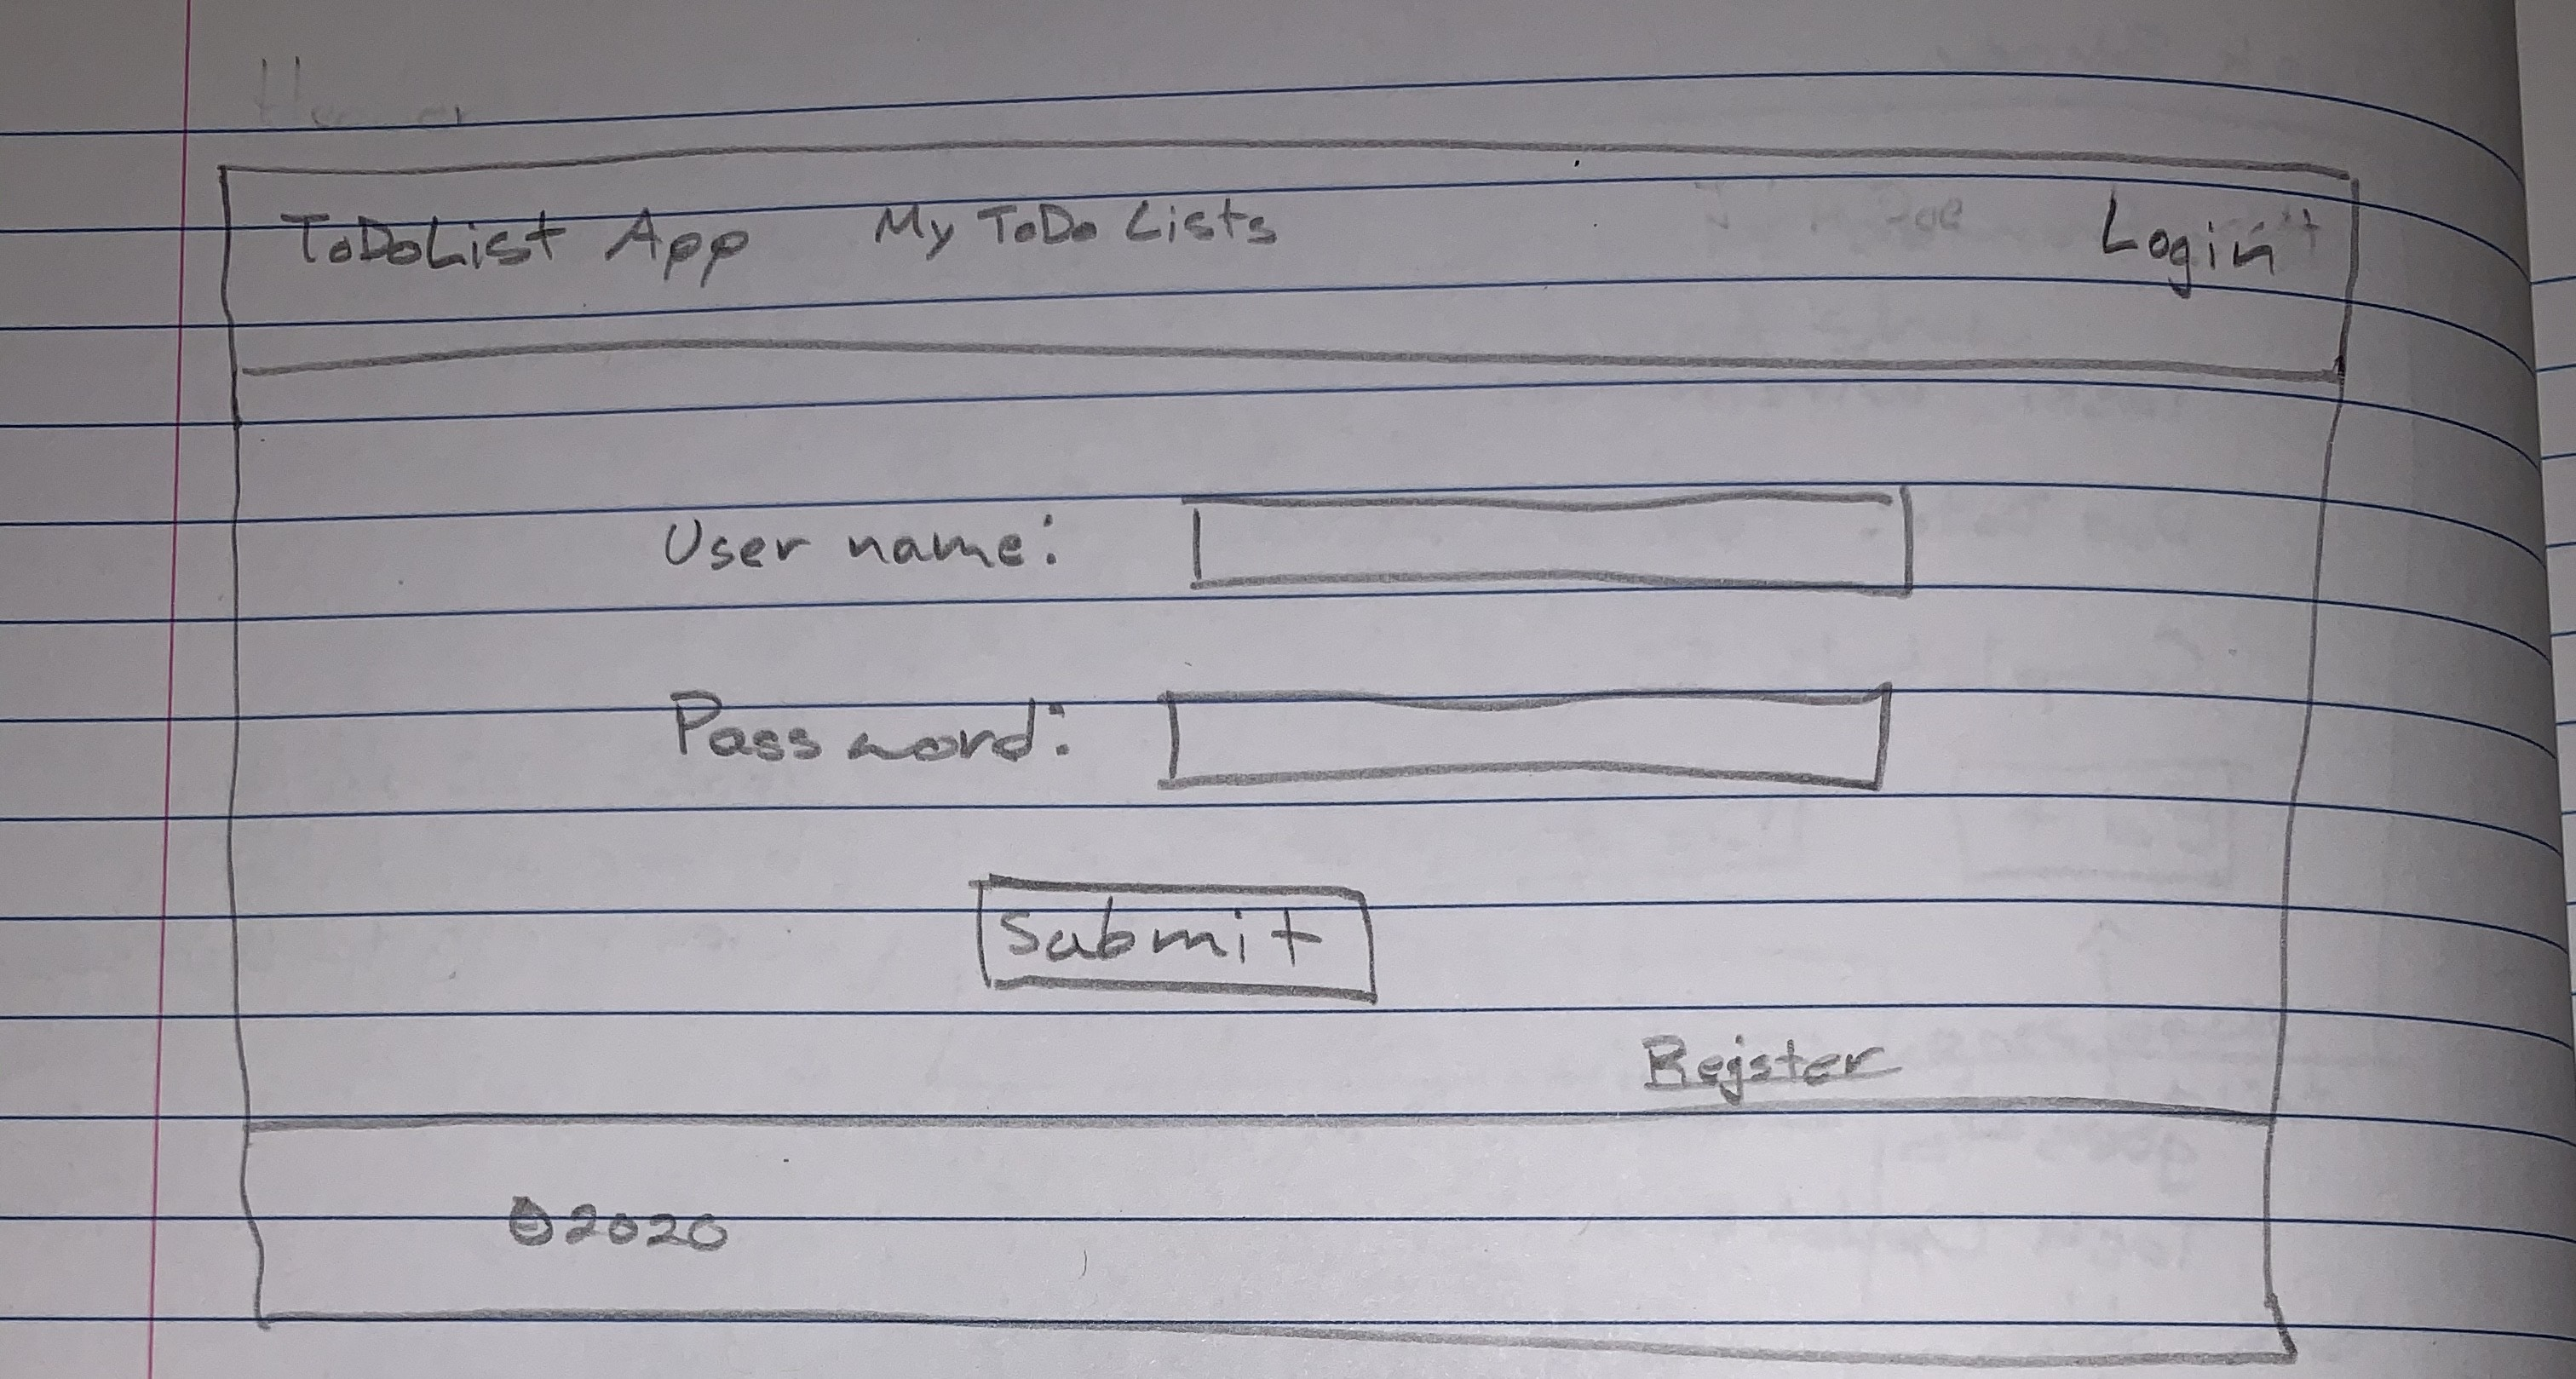 ToDoList App My ToDo Lists Login
User name:
Password:
Submit
Register
©2020